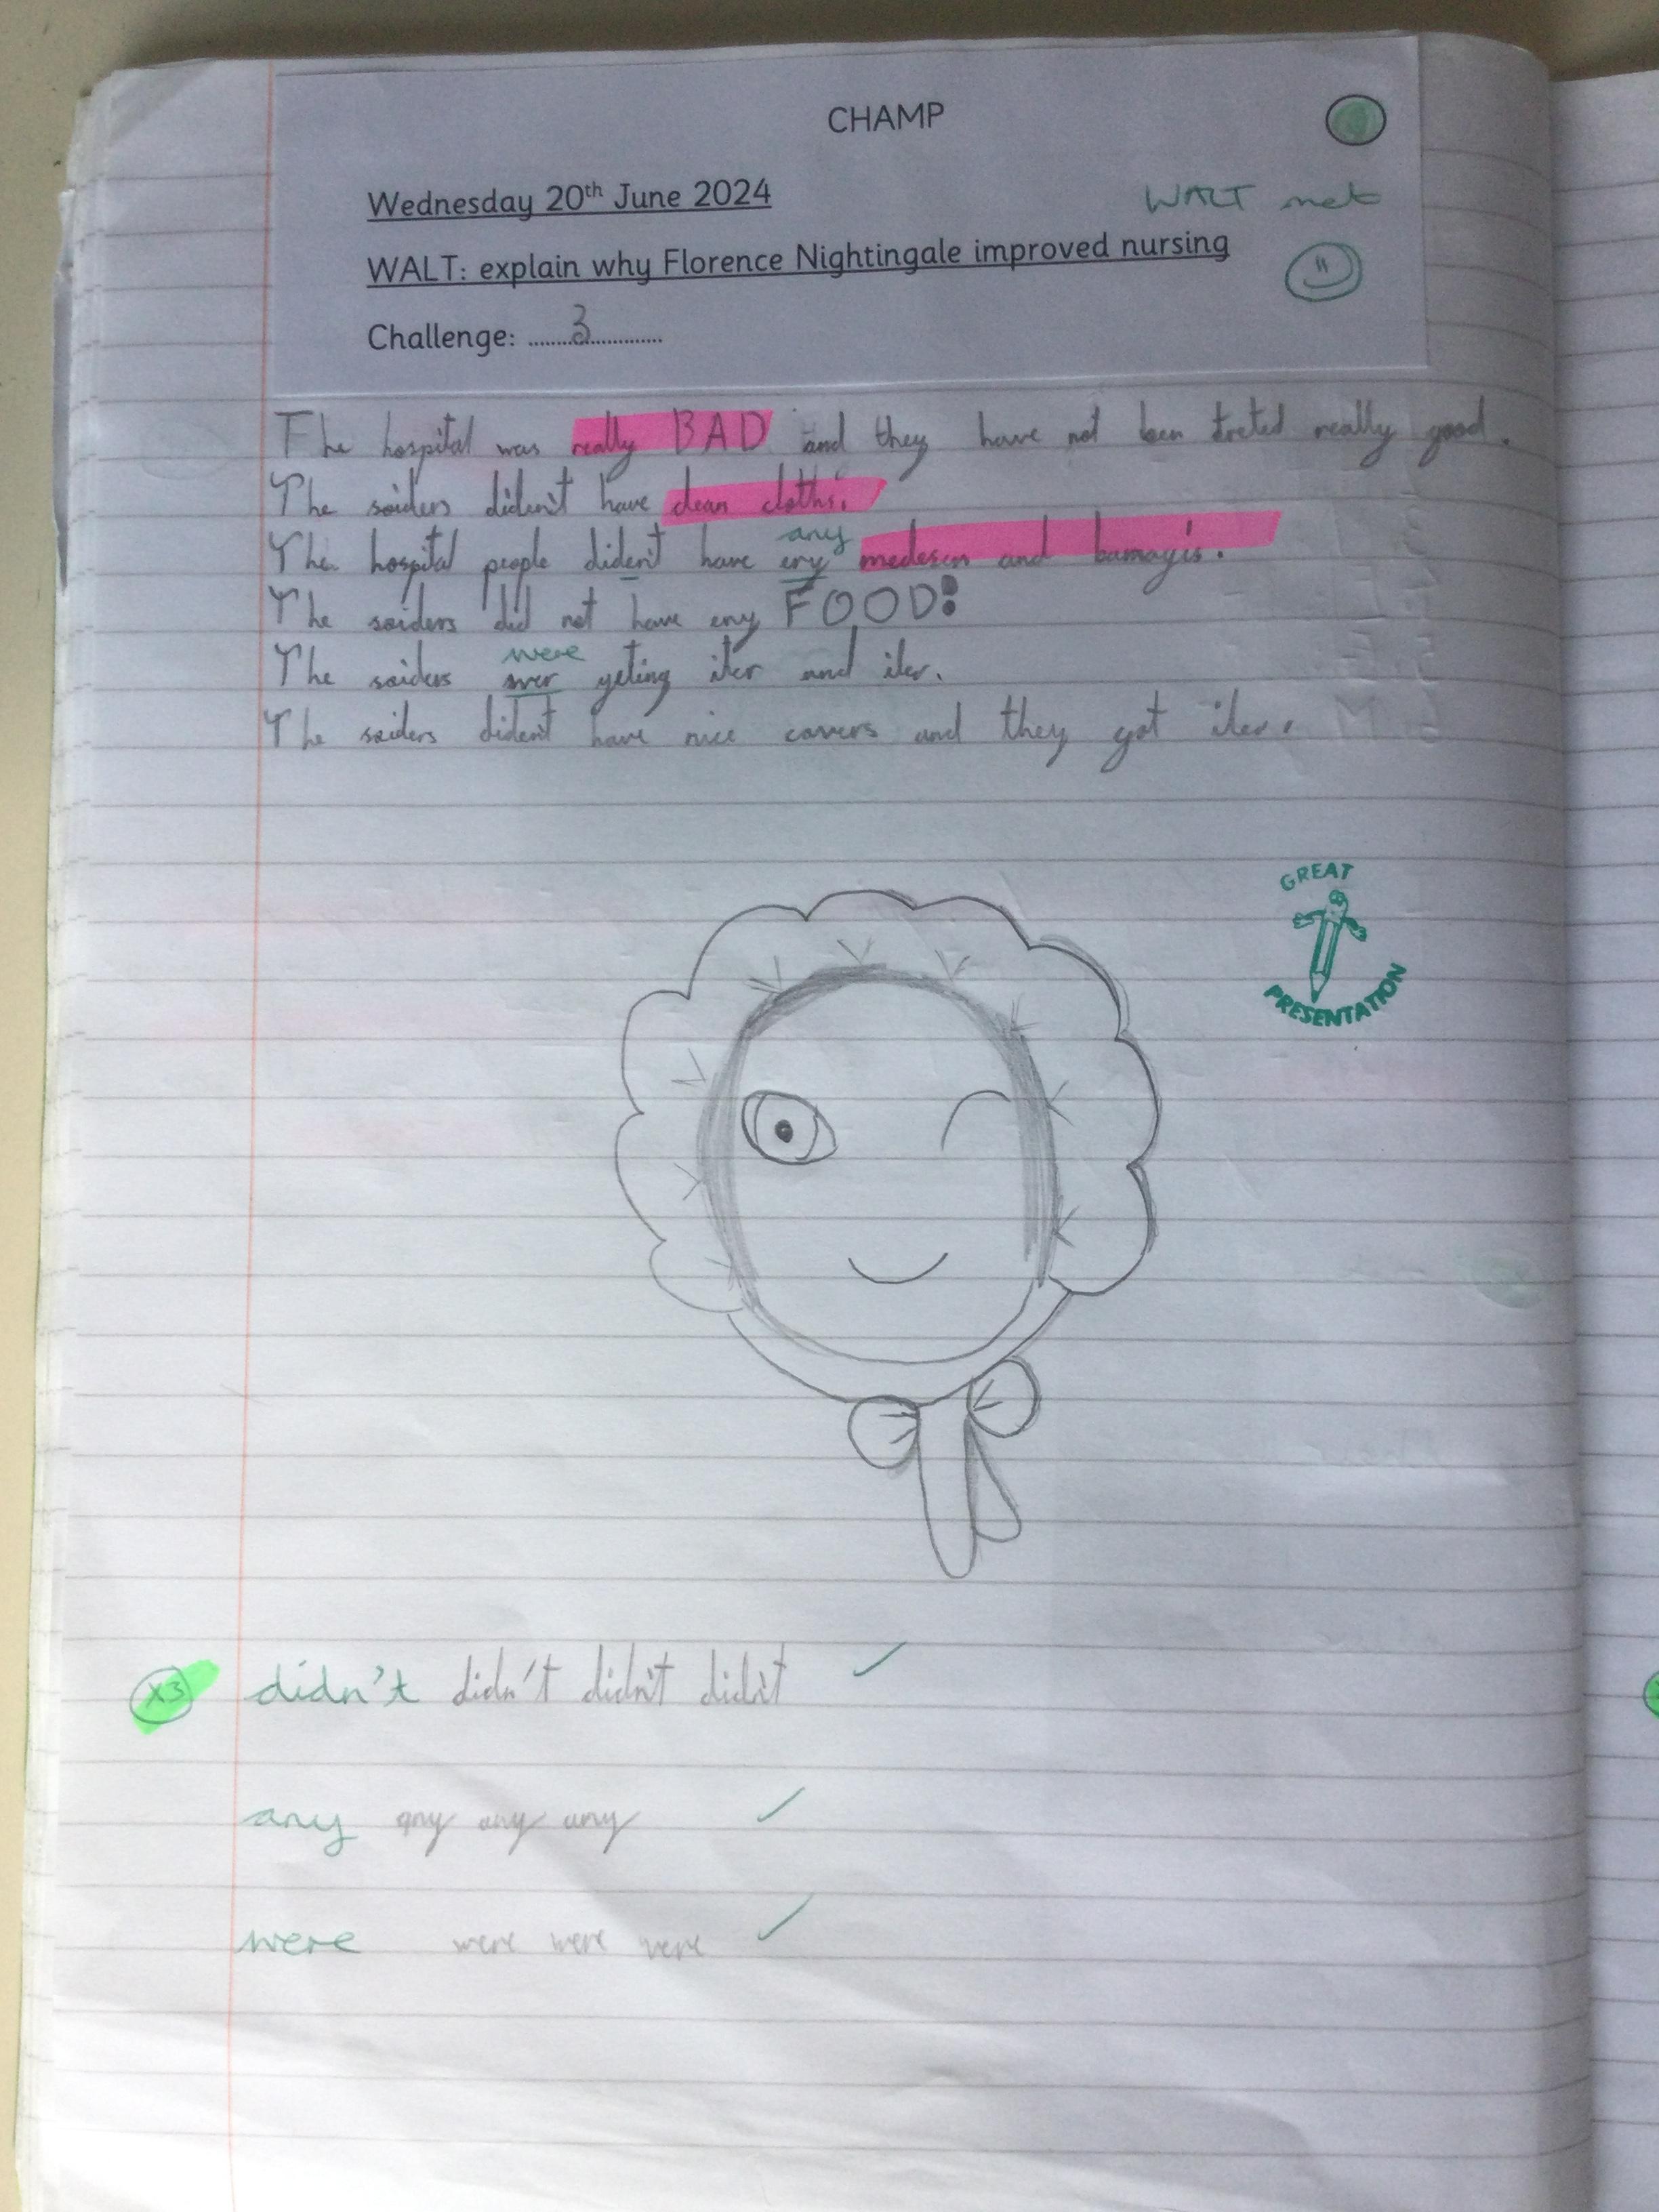 CHAMP
Wednesday 20th June 2024
WALT met
WALT: explain why Florence Nightingale improved nursing
Challenge: ......3......
The hospital was really BAD and they have not been treted really good.
The soiders diden't have clean cloths.
any
The hospital people diden't have eny medesen and bamayis.
The soiders did not have eny FOOD!
were
The soiders wer geting iler and iler.
The soiders diden't have nice covers and they got iler.
GREAT
PRESENTATION
x3 didn't didn't didn't didn't
any any any any
were were were were